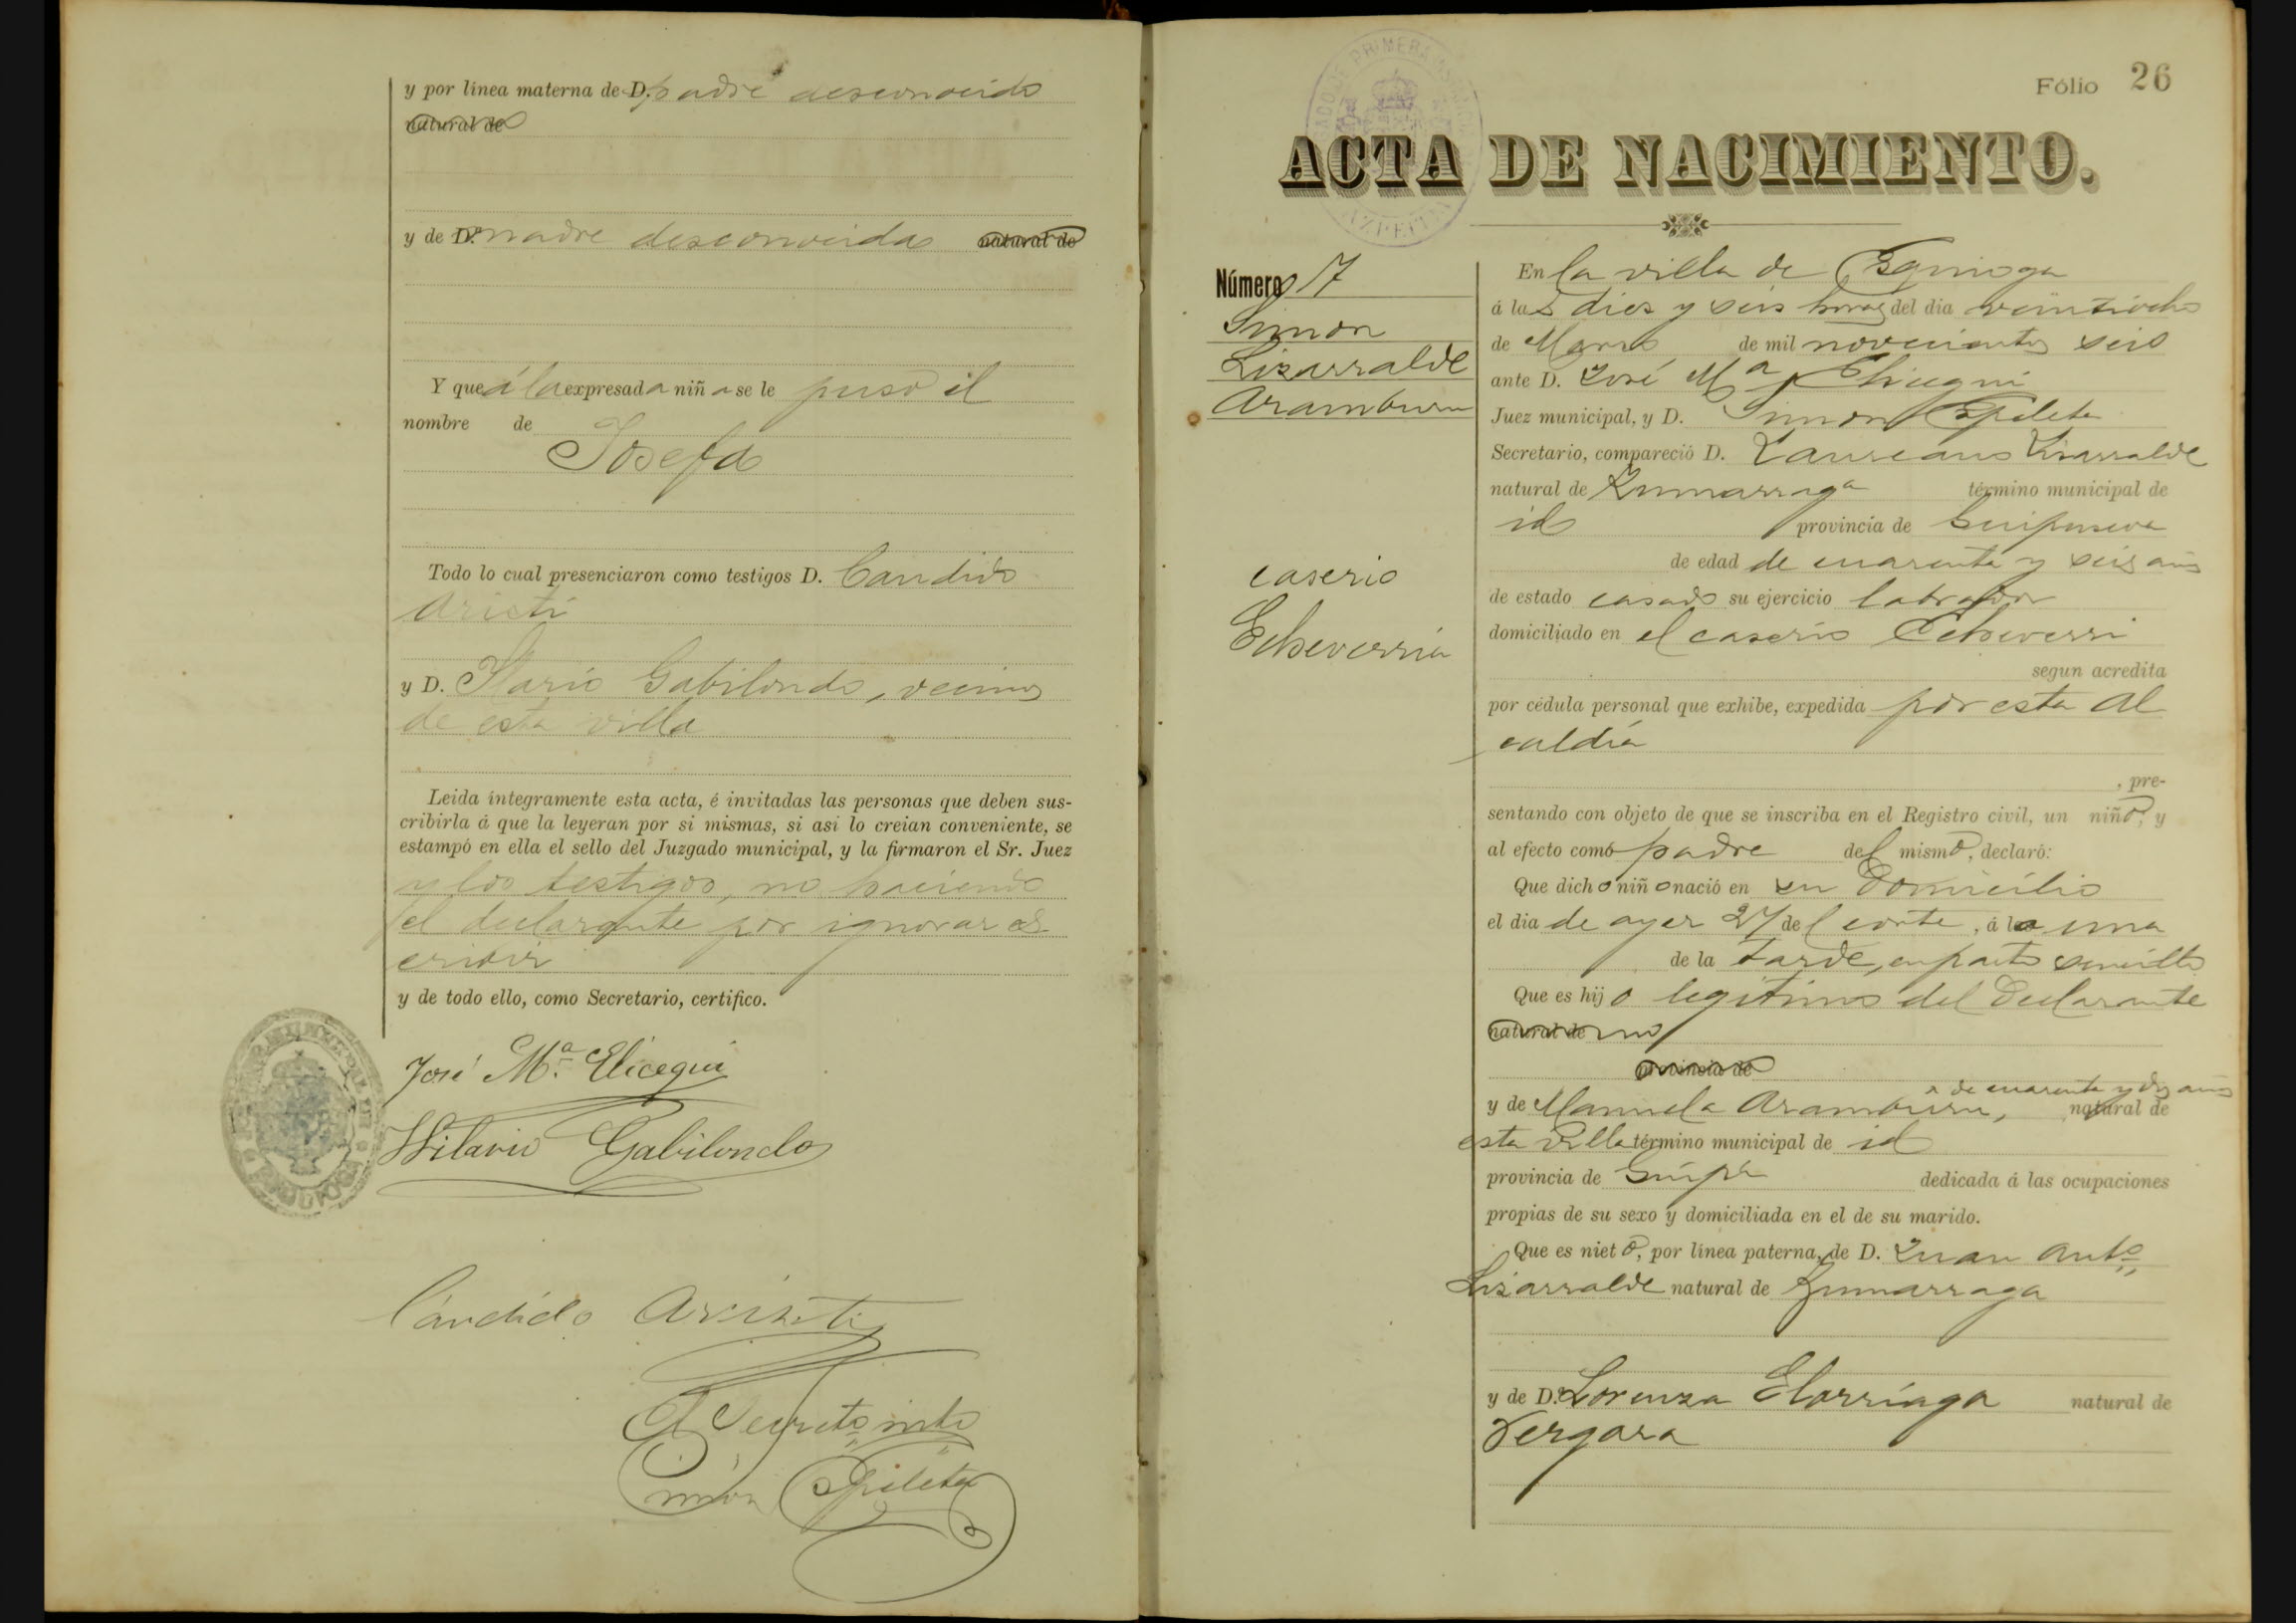 y por línea materna de D. padre desconocido
natural de
y de D.ª madre desconocida natural de
Y que á la expresada niña se le puso el
nombre de
Josefa
Todo lo cual presenciaron como testigos D. Candido
Aristi
y D. Ilario Gabilondo, vecinos
de esta villa
Leida íntegramente esta acta, é invitadas las personas que deben sus-
cribirla á que la leyeran por si mismas, si asi lo creian conveniente, se
estampó en ella el sello del Juzgado municipal, y la firmaron el Sr. Juez
y los testigos, no haciendo
el declarante por ignorar es
cribir
y de todo ello, como Secretario, certifico.
José M.ª Elicegui
Hilario Gabilondo
Cándido Aristi
El Secreto into
Simón Epileta
Fólio 26
ACTA DE NACIMIENTO.
AZPEITIA
Número 17
Simon
Lizarralde
Aramburu
caserio
Echeverria
En la villa de Ezquioga
á las diez y seis horas del dia veintiocho
de Marzo de mil novecientos seis
ante D. José Mª Elicegui
Juez municipal, y D. Simon Epileta
Secretario, compareció D. Laureano Lizarralde
natural de Zumarraga término municipal de
id provincia de Guipuzcoa
de edad de cuarenta y seis años
de estado casado su ejercicio labrador
domiciliado en el caserio Echeverri
segun acredita
por cédula personal que exhibe, expedida por esta Al
caldía
, pre-
sentando con objeto de que se inscriba en el Registro civil, un niño, y
al efecto como padre del mismo, declaró:
Que dicho niño nació en su domicilio
el dia de ayer 27 del corte, á la una
de la tarde, en parto sencillo
Que es hijo legítimo del declarante
natural de
provincia de
de cuarenta y dos años
y de Manuela Aramburu, natural de
esta villa término municipal de id
provincia de Guipª dedicada á las ocupaciones
propias de su sexo y domiciliada en el de su marido.
Que es nieto, por línea paterna, de D. Juan Antº
Lizarralde natural de Zumarraga
y de D.ª Lorenza Elorriaga natural de
Vergara